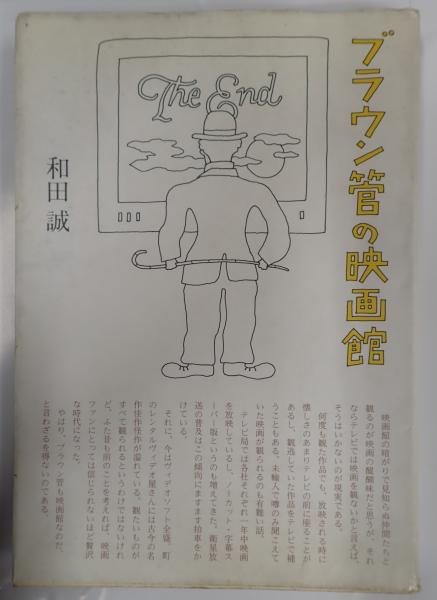 ブラウン管の映画館
The End
和田誠
映画館の暗がりで見知らぬ仲間たちと
観るのが映画の醍醐味だと思うが、それ
ならテレビでは映画を観ないかと言えば、
そうはいかないのが現実である。
何度も観た作品でも、放映される時に
懐しさのあまりテレビの前に座ることが
あるし、観逃していた作品をテレビで補
うこともある。未輸入で噂のみ聞こえて
いた映画が観られるのも有難い話。
テレビ局では各社それぞれ一年中映画
を放映しているし、ノーカット・字幕ス
ーパー版というのも増えてきた。衛星放
送の普及はこの傾向にますます拍車をか
けている。
それに、今はヴィデオソフト全盛。町
のレンタルヴィデオ屋さんには古今の名
作佳作怪作が溢れている。観たいものが
すべて観られるというわけではないけれ
ど、ふた昔も前のことを考えれば、映画
ファンにとっては信じられないほど贅沢
な時代になった。
やはり、ブラウン管も映画館なのだ、
と言わざるを得ないのである。